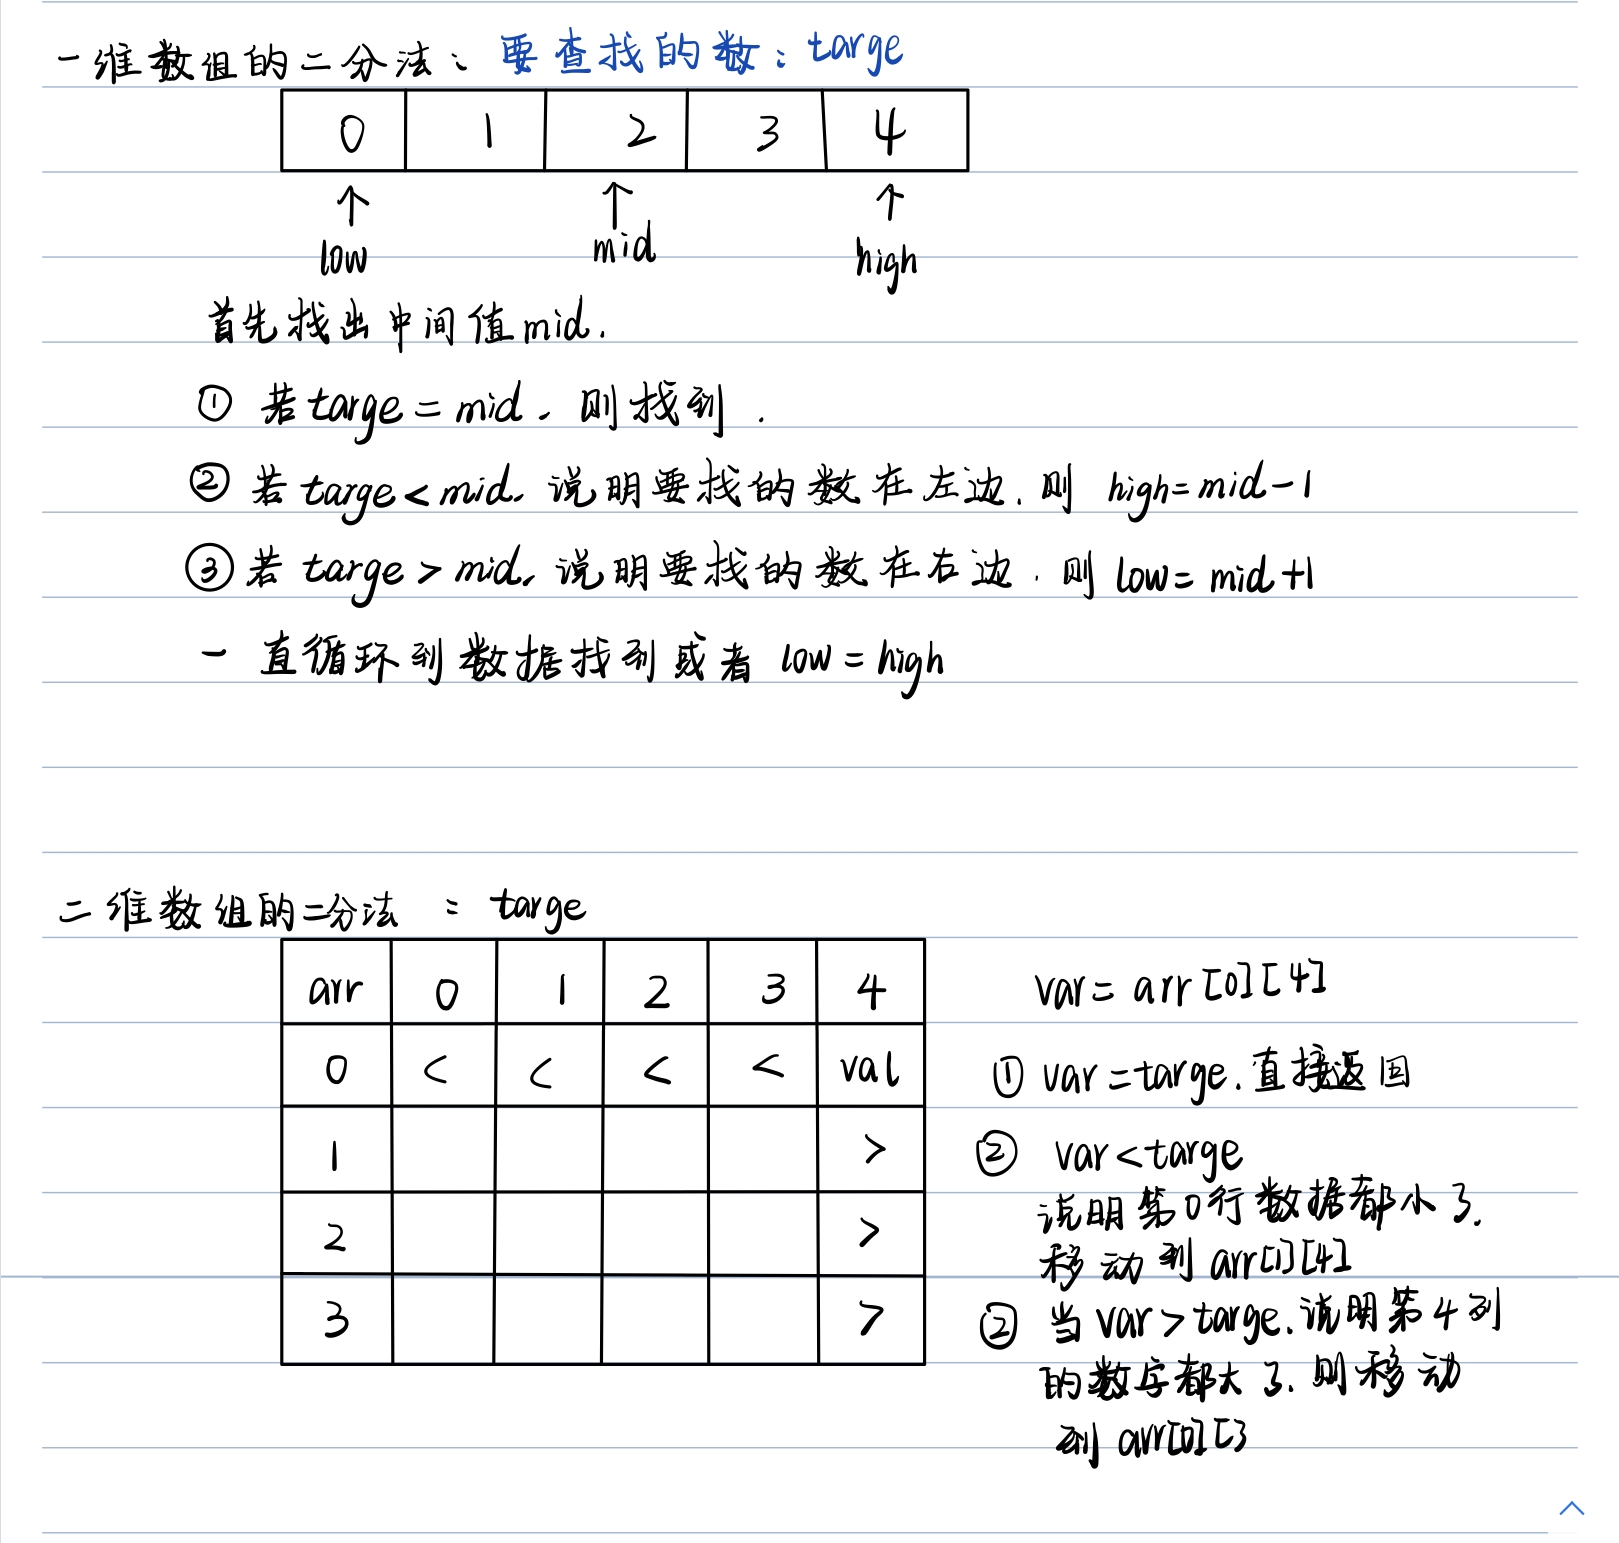 一维数组的二分法: 要查找的数: targe
0 1 2 3 4
↑ ↑ ↑
low mid high
首先找出中间值mid.
① 若targe=mid, 则找到.
② 若targe<mid, 说明要找的数在左边, 则 high=mid-1
③ 若 targe>mid, 说明要找的数在右边, 则 low=mid+1
一直循环到数据找到或者 low=high
二维数组的二分法 : targe
arr 0 1 2 3 4
0 < < < < val
1 >
2 >
3 >
var= arr[0][4]
① var=targe.直接返回
② var<targe
说明第0行数据都小了,
移动到arr[1][4]
② 当var>targe.说明第4列
的数字都大了.则移动
到arr[0][3